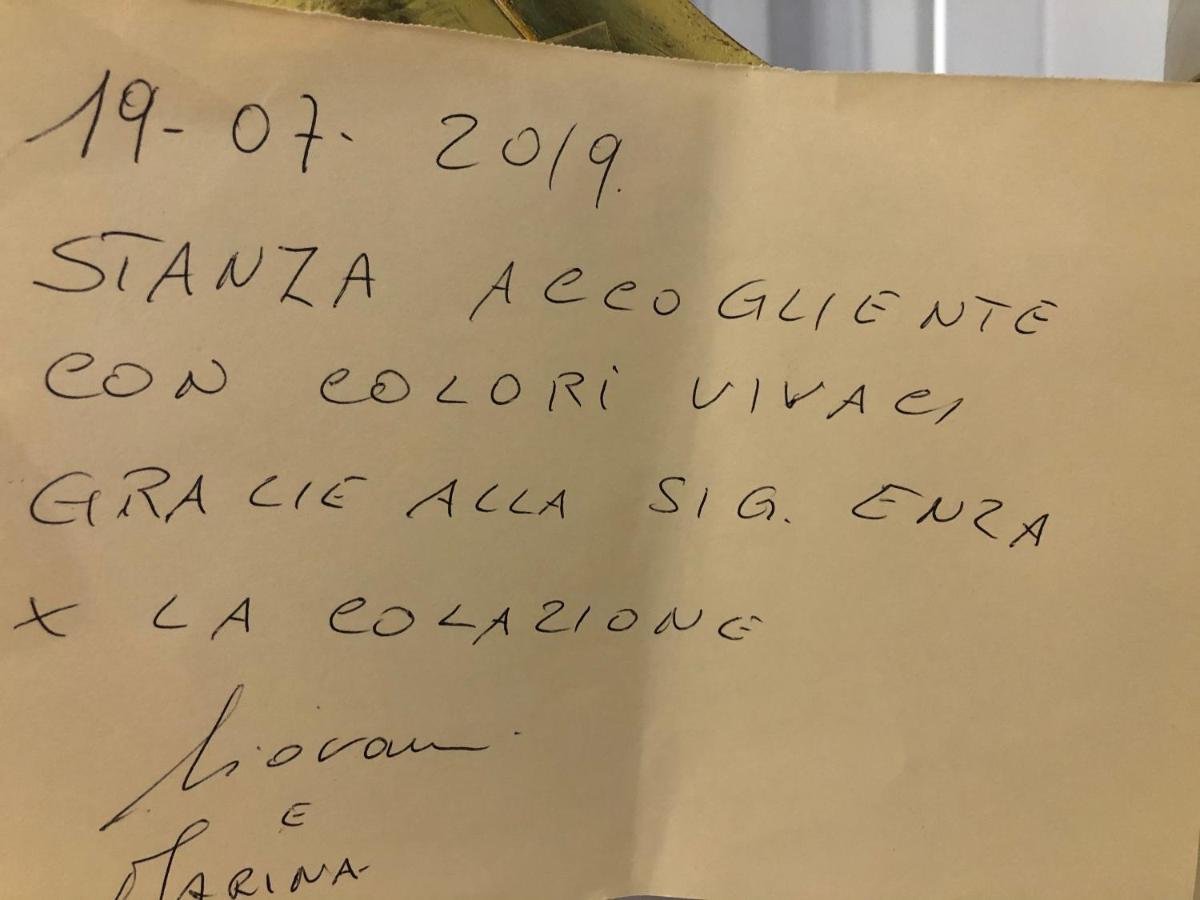 19-07- 2019.
STANZA ACCOGLIENTE
CON COLORI VIVACI
GRACIE ALLA SIG. ENZA
X LA COLAZIONE
Giovanni
E
MARINA